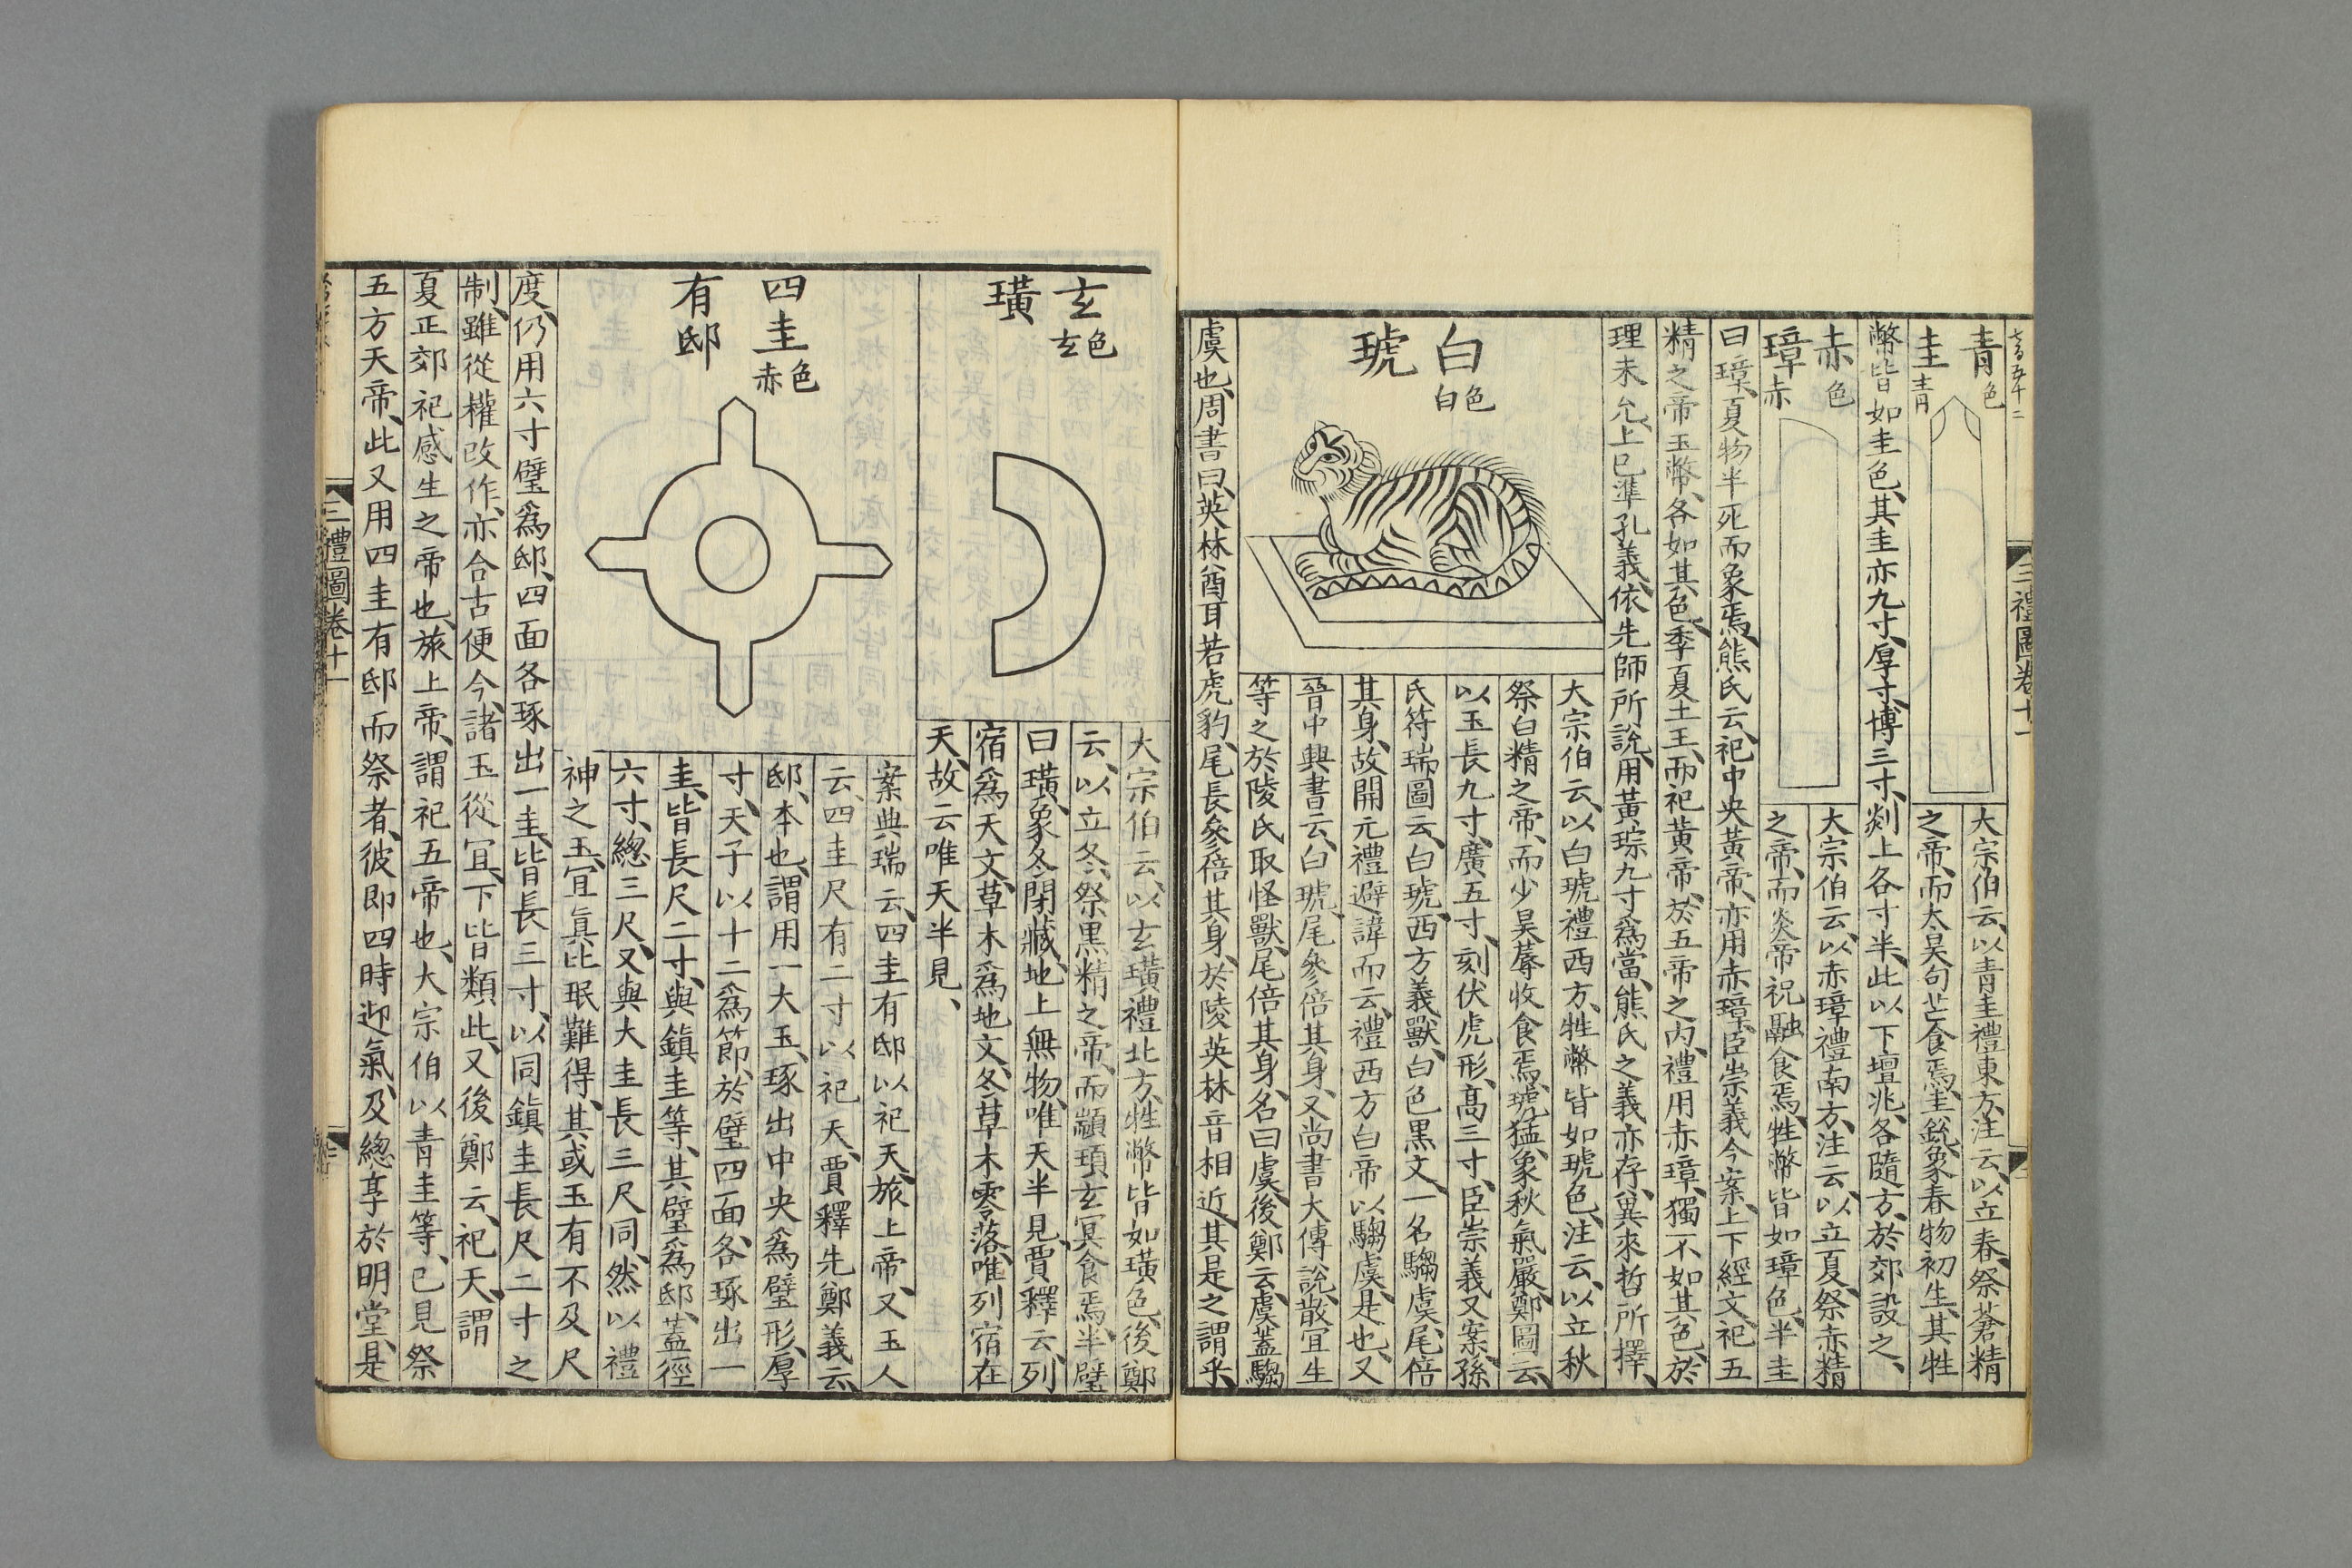 三禮圖卷十一
青圭
青色
大宗伯云以青圭禮東方注云以立春祭蒼精
之帝而太昊句芒食焉圭銳象春物初生其牲
幣皆如圭色其圭亦九寸厚寸博三寸剡上各寸半此以下壇兆各隨方於郊設之
赤璋
赤色
大宗伯云以赤璋禮南方注云以立夏祭赤精
之帝而炎帝祝融食焉牲幣皆如璋色半圭
曰璋夏物半死而象焉熊氏云祀中央黃帝亦用赤璋臣崇義今案上下經文祀五
精之帝玉幣各如其色季夏土王而祀黃帝於五帝之內禮用赤璋獨不如其色於
理未允上已準孔義依先師所說用黃琮九寸爲當熊氏之義亦存冀來哲所擇
白琥
白色
大宗伯云以白琥禮西方牲幣皆如琥色注云以立秋
祭白精之帝而少昊蓐收食焉琥猛象秋氣嚴鄭圖云
以玉長九寸廣五寸刻伏虎形高三寸臣崇義又案孫
氏符瑞圖云白琥西方義獸白色黑文一名騶虞尾倍
其身故開元禮避諱而云禮西方白帝以騶虞是也又
晉中興書云白琥尾參倍其身又尚書大傳說散宜生
等之於陵氏取怪獸尾倍其身名曰虞後鄭云虞蓋騶
虞也周書曰英林酋耳若虎豹尾長參倍其身於陵英林音相近其是之謂乎
玄璜
玄色
大宗伯云以玄璜禮北方牲幣皆如璜色後鄭
云以立冬祭黑精之帝而顓頊玄冥食焉半璧
曰璜象冬閉藏地上無物唯天半見賈釋云列
宿爲天文草木爲地文冬草木零落唯列宿在
天故云唯天半見
四圭有邸
赤色
案典瑞云四圭有邸以祀天旅上帝又玉人
云四圭尺有二寸以祀天賈釋先鄭義云
邸本也謂用一大玉琢出中央爲璧形厚
寸天子以十二爲節於璧四面各琢出一
圭皆長尺二寸與鎮圭等其璧爲邸蓋徑
六寸總三尺又與大圭長三尺同然以禮
神之玉宜真比珉難得其或玉有不及尺
度仍用六寸璧爲邸四面各琢出一圭皆長三寸以同鎮圭長尺二寸之
制雖從權改作亦合古便今諸玉從宜下皆類此又後鄭云祀天謂
夏正郊祀感生之帝也旅上帝謂祀五帝也大宗伯以青圭等已見祭
五方天帝此又用四圭有邸而祭者彼即四時迎氣及總享於明堂是
三禮圖卷十一